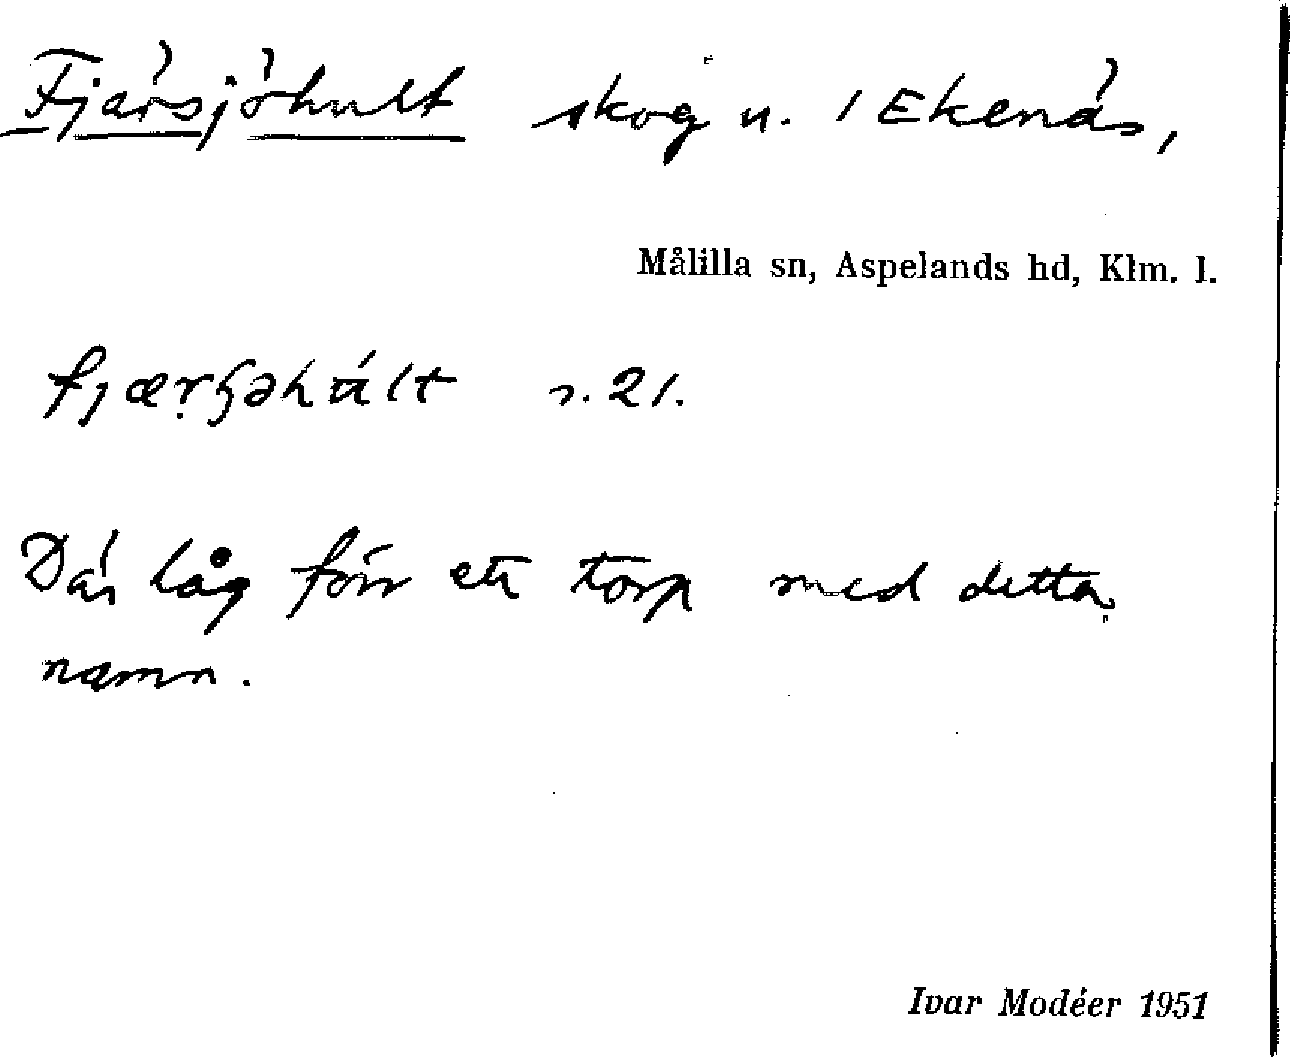 Fjärsjöhult skog u. 1 Ekenäs,
Målilla sn, Aspelands hd, Klm. l.
s. 21.
Där låg förr ett torp med detta
namn.
Ivar Modéer 1951